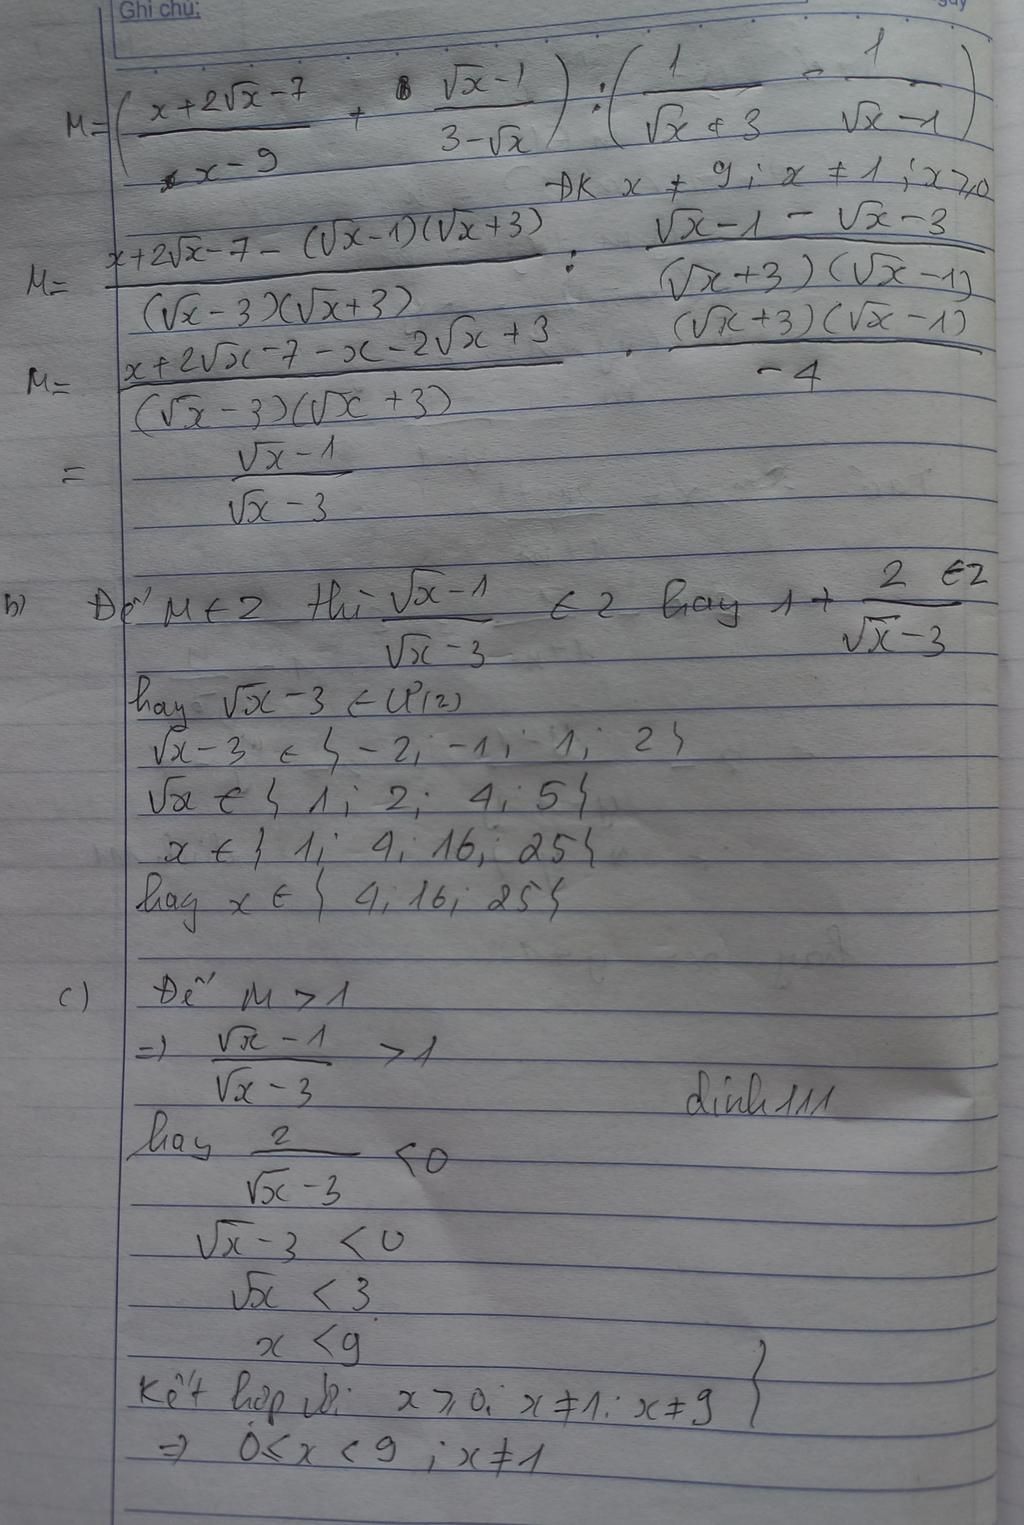 Ghi chú:
M = ( (x + 2√x - 7)/(x - 9) + (√x - 1)/(3 - √x) ) : ( 1/(√x + 3) - 1/(√x - 1) )
ĐK x ≠ 9 ; x ≠ 1 ; x ⩾ 0
M = (x + 2√x - 7 - (√x - 1)(√x + 3))/((√x - 3)(√x + 3)) : (√x - 1 - √x - 3)/((√x + 3)(√x - 1))
M = (x + 2√x - 7 - x - 2√x + 3)/((√x - 3)(√x + 3)) . ((√x + 3)(√x - 1))/(-4)
= (√x - 1)/(√x - 3)
b) Để M ∈ Z thì (√x - 1)/(√x - 3) ∈ Z hay 1 + 2/(√x - 3) ∈ Z
hay √x - 3 ∈ Ư(2)
√x - 3 ∈ { -2; -1; 1; 2 }
√x ∈ { 1; 2; 4; 5 }
x ∈ { 1; 4; 16; 25 }
hay x ∈ { 4; 16; 25 }
c) Để M > 1
=> (√x - 1)/(√x - 3) > 1
dinh111
hay 2/(√x - 3) < 0
√x - 3 < 0
√x < 3
x < 9
Kết hợp với x ⩾ 0; x ≠ 1; x ≠ 9 }
=> 0 ≤ x < 9 ; x ≠ 1